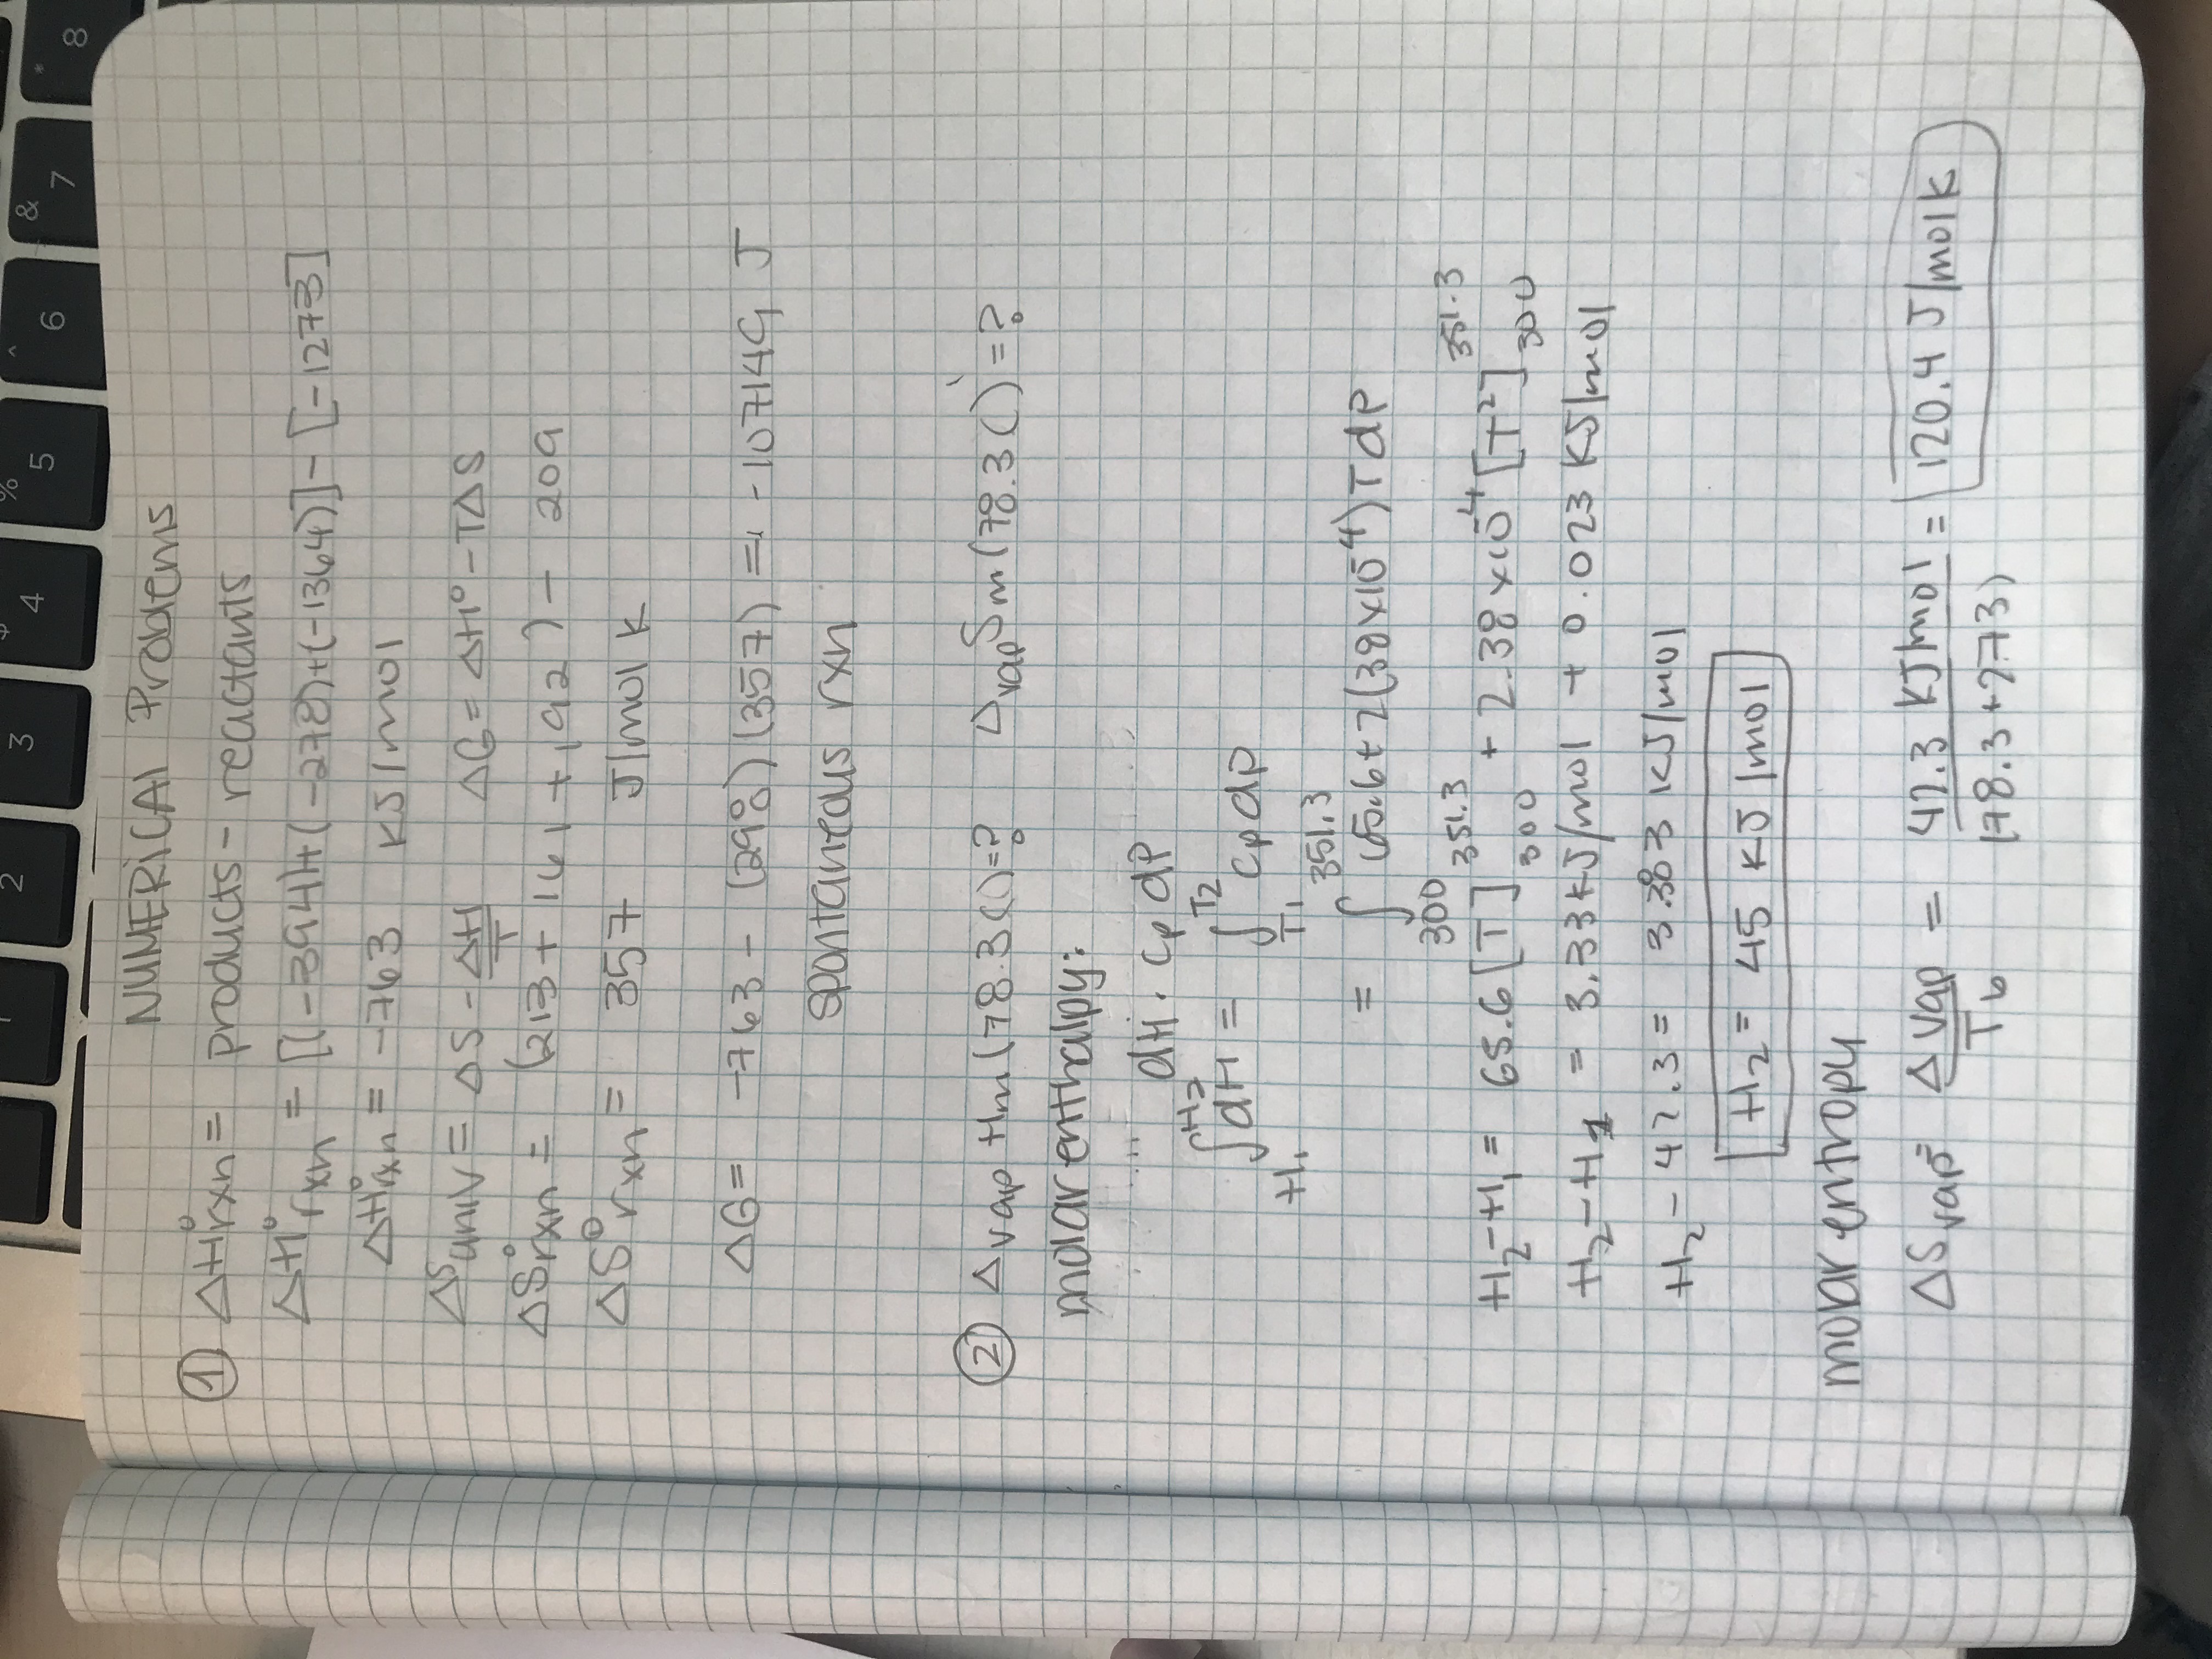 1 2 3 $ 4 % 5 ^ 6 & 7 * 8
NUMERICAl Problems
① ΔH°rxn = products - reactants
ΔH°rxn = [(-394)+(-278)+(-1364)] - [-1273]
ΔH°rxn = -763 KJ/mol
ΔSuniv = ΔS - ΔH/T ΔG = ΔH° - TΔS
ΔS°rxn = (213 + 161 + 192) - 209
ΔS°rxn = 357 J/mol K
ΔG = -763 - (298)(357) = -107149 J
spontaneous rxn
② Δvap Hm(78.3C)=? ΔvapSm(78.3C)=?
molar enthalpy:
dH · Cp dP
∫H₁^H₂ dH = ∫T1^T2 Cp dP
= ∫300^351.3 65.6+2(38×10⁻⁴)T dP
H₂-H₁ = 65.6[T]300^351.3 + 2.38×10⁻⁴[T²]300^351.3
H₂-H1 = 3.33KJ/mol + 0.023 KJ/mol
H₂ - 42.3 = 3.383 KJ/mol
H₂ = 45 KJ/mol
molar entropy
ΔSvap = Δvap/Tb = 42.3 KJ/mol/(78.3+273) = 120.4 J/molK